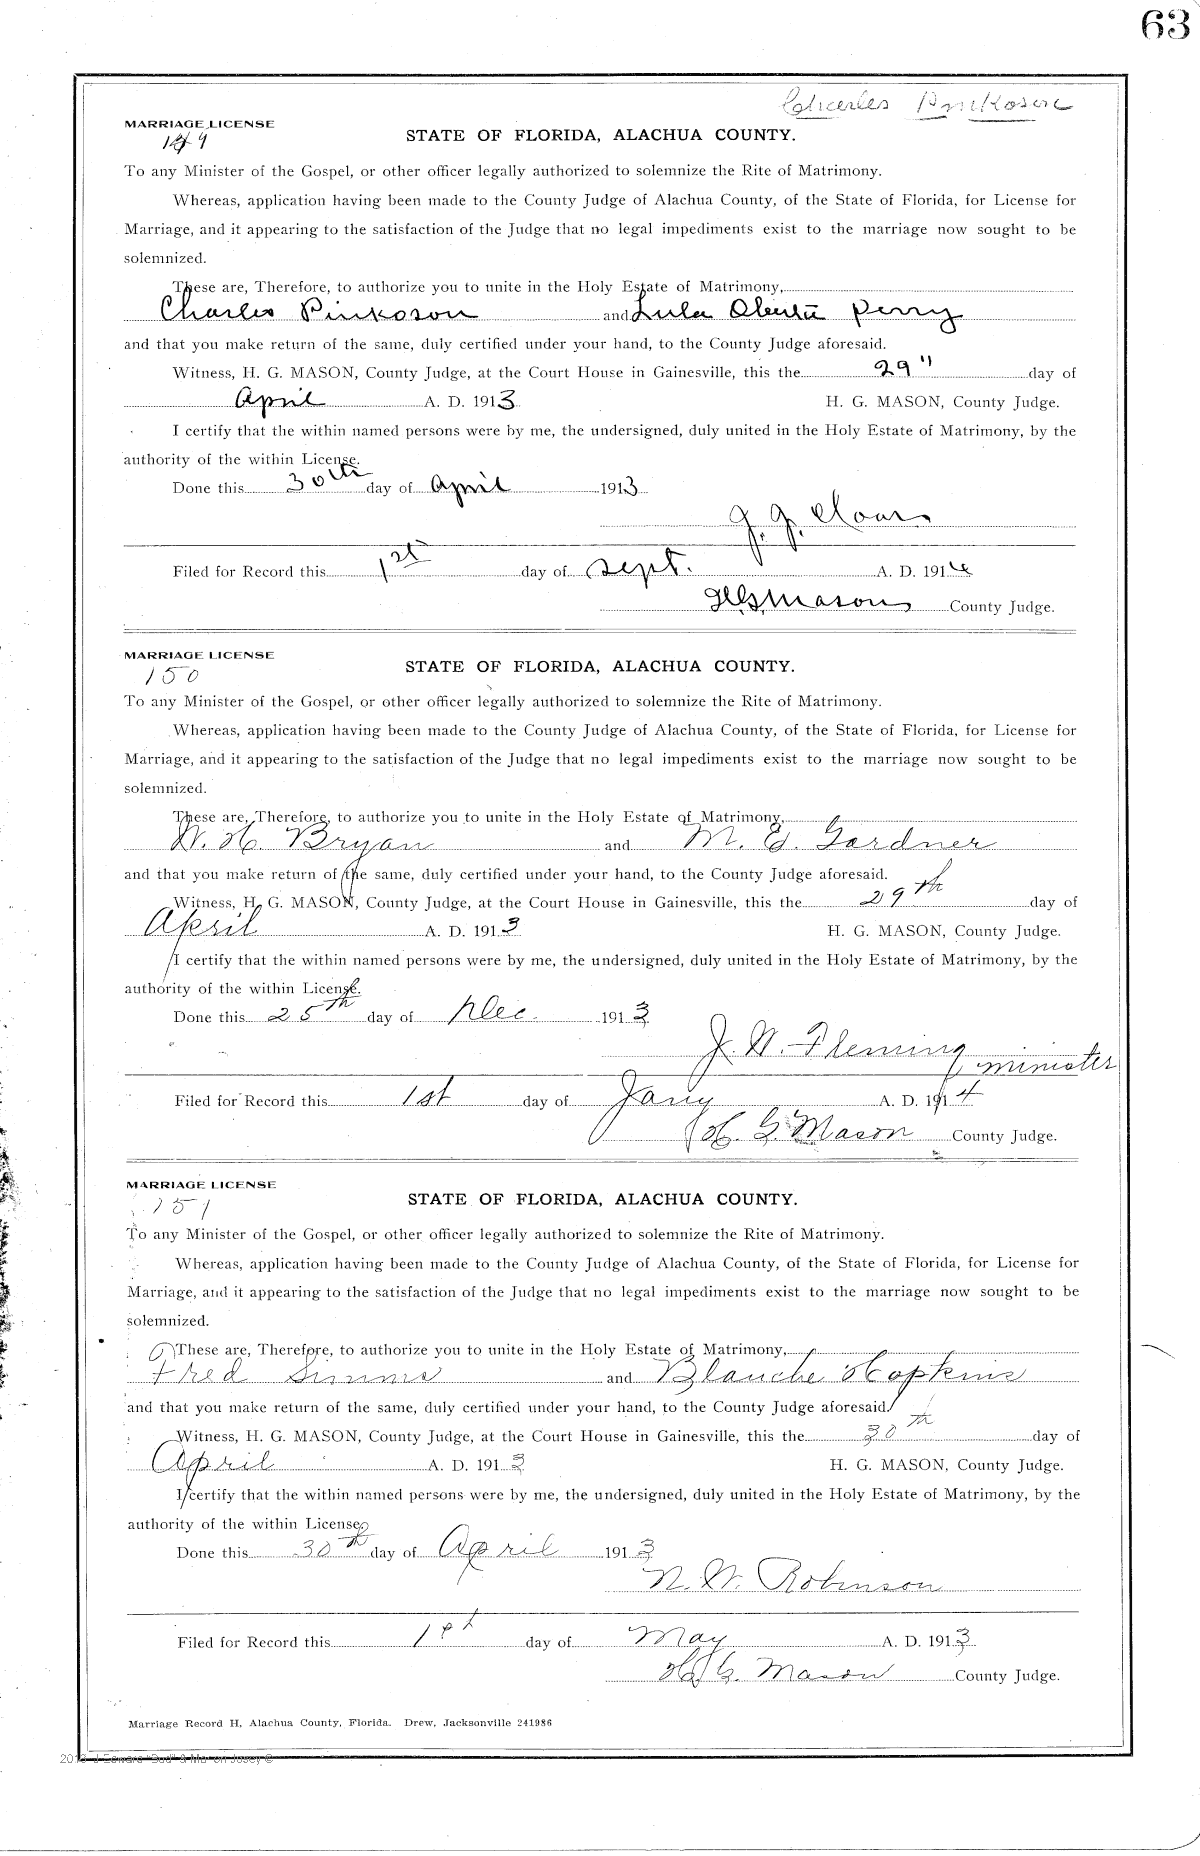 63
Charles Pinkoson
MARRIAGE LICENSE
149
STATE OF FLORIDA, ALACHUA COUNTY.
To any Minister of the Gospel, or other officer legally authorized to solemnize the Rite of Matrimony.
Whereas, application having been made to the County Judge of Alachua County, of the State of Florida, for License for
Marriage, and it appearing to the satisfaction of the Judge that no legal impediments exist to the marriage now sought to be
solemnized.
These are, Therefore, to authorize you to unite in the Holy Estate of Matrimony,
Charles Pinkoson and Lula Perry
and that you make return of the same, duly certified under your hand, to the County Judge aforesaid.
Witness, H. G. MASON, County Judge, at the Court House in Gainesville, this the 29" day of
April A. D. 1913 H. G. MASON, County Judge.
I certify that the within named persons were by me, the undersigned, duly united in the Holy Estate of Matrimony, by the
authority of the within License.
Done this 30th day of April 1913
J. J.
Filed for Record this 1st day of Sept. A. D. 191
H.G. Mason County Judge.
MARRIAGE LICENSE
150
STATE OF FLORIDA, ALACHUA COUNTY.
To any Minister of the Gospel, or other officer legally authorized to solemnize the Rite of Matrimony.
Whereas, application having been made to the County Judge of Alachua County, of the State of Florida, for License for
Marriage, and it appearing to the satisfaction of the Judge that no legal impediments exist to the marriage now sought to be
solemnized.
These are, Therefore, to authorize you to unite in the Holy Estate of Matrimony,
W. H. Bryan and M. E. Gardner
and that you make return of the same, duly certified under your hand, to the County Judge aforesaid.
Witness, H. G. MASON, County Judge, at the Court House in Gainesville, this the 29th day of
April A. D. 1913 H. G. MASON, County Judge.
I certify that the within named persons were by me, the undersigned, duly united in the Holy Estate of Matrimony, by the
authority of the within License.
Done this 25th day of Dec. 1913
J. W. Fleming minister
Filed for Record this 1st day of Jany A. D. 1914
H. G. Mason County Judge.
MARRIAGE LICENSE
151
STATE OF FLORIDA, ALACHUA COUNTY.
To any Minister of the Gospel, or other officer legally authorized to solemnize the Rite of Matrimony.
Whereas, application having been made to the County Judge of Alachua County, of the State of Florida, for License for
Marriage, and it appearing to the satisfaction of the Judge that no legal impediments exist to the marriage now sought to be
solemnized.
These are, Therefore, to authorize you to unite in the Holy Estate of Matrimony,
Fred Simms and Blanche Hopkins
and that you make return of the same, duly certified under your hand, to the County Judge aforesaid.
Witness, H. G. MASON, County Judge, at the Court House in Gainesville, this the 30th day of
April A. D. 1913 H. G. MASON, County Judge.
I certify that the within named persons were by me, the undersigned, duly united in the Holy Estate of Matrimony, by the
authority of the within License
Done this 30th day of April 1913
N. W. Robinson
Filed for Record this 1st day of May A. D. 1913
H. G. Mason County Judge.
Marriage Record H, Alachua County, Florida. Drew, Jacksonville 241986